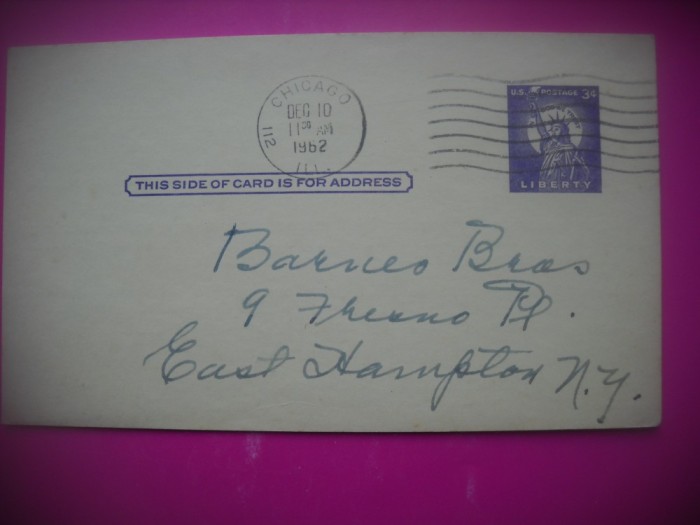 CHICAGO
DEC 10
11 30 AM
1962
ILL.
112
U.S. POSTAGE 3¢
LIBERTY
THIS SIDE OF CARD IS FOR ADDRESS
Barnes Bros
9 Fresno Pl.
East Hampton N.Y.